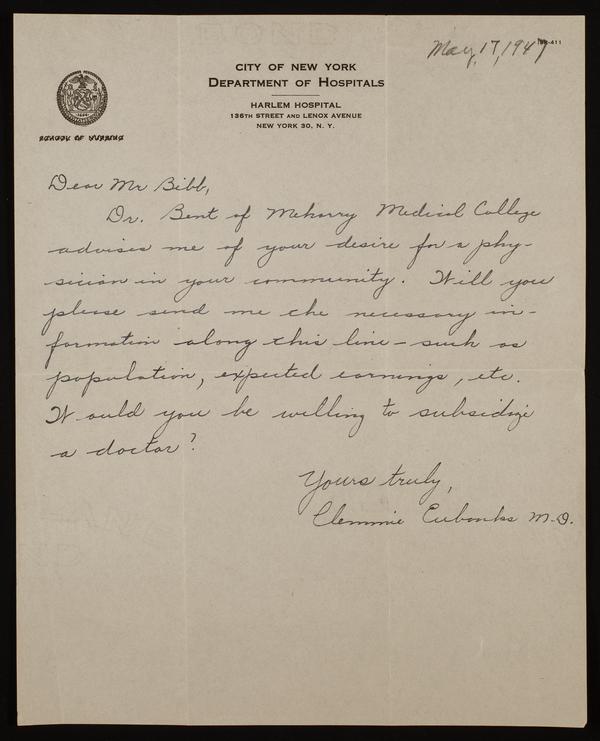 May, 17, 1947
CITY OF NEW YORK
DEPARTMENT OF HOSPITALS
HARLEM HOSPITAL
136TH STREET AND LENOX AVENUE
NEW YORK 30, N. Y.
SCHOOL OF NURSING
Dear Mr Bibb,
Dr. Bent of Meharry Medical College
advises me of your desire for a phy-
sician in your community. Will you
please send me the necessary in-
formation along this line – such as
population, expected earnings, etc.
Would you be willing to subsidize
a doctor?
Yours truly,
Clemmie Eubanks M.D.